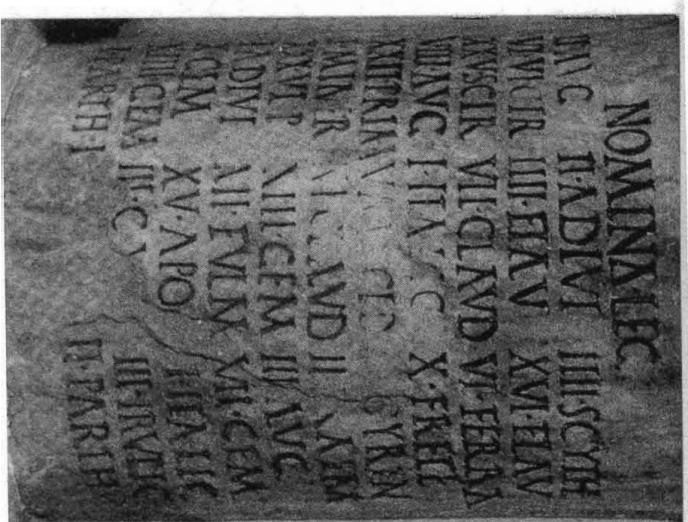 NOMINA·LEG
II AVG II·ADIVT IIII·SCYTH
VI VICTR IIII·FLAV XVI·FLAV
XX VICTR VII·CLAVD VI·FERRA
VIII AVG I·ITA C X·FRETE
XXII PRIM CED CYREN
I MIN R XI CLAVD II
XXX VL P XIII·GEM III AVG
I ADIVT XII·FVLM VII·GEM
X GEM XV·APO II·ITALIC
XIIII·GEM III·G III·ITALIC
I PARTH·I II·PARTH